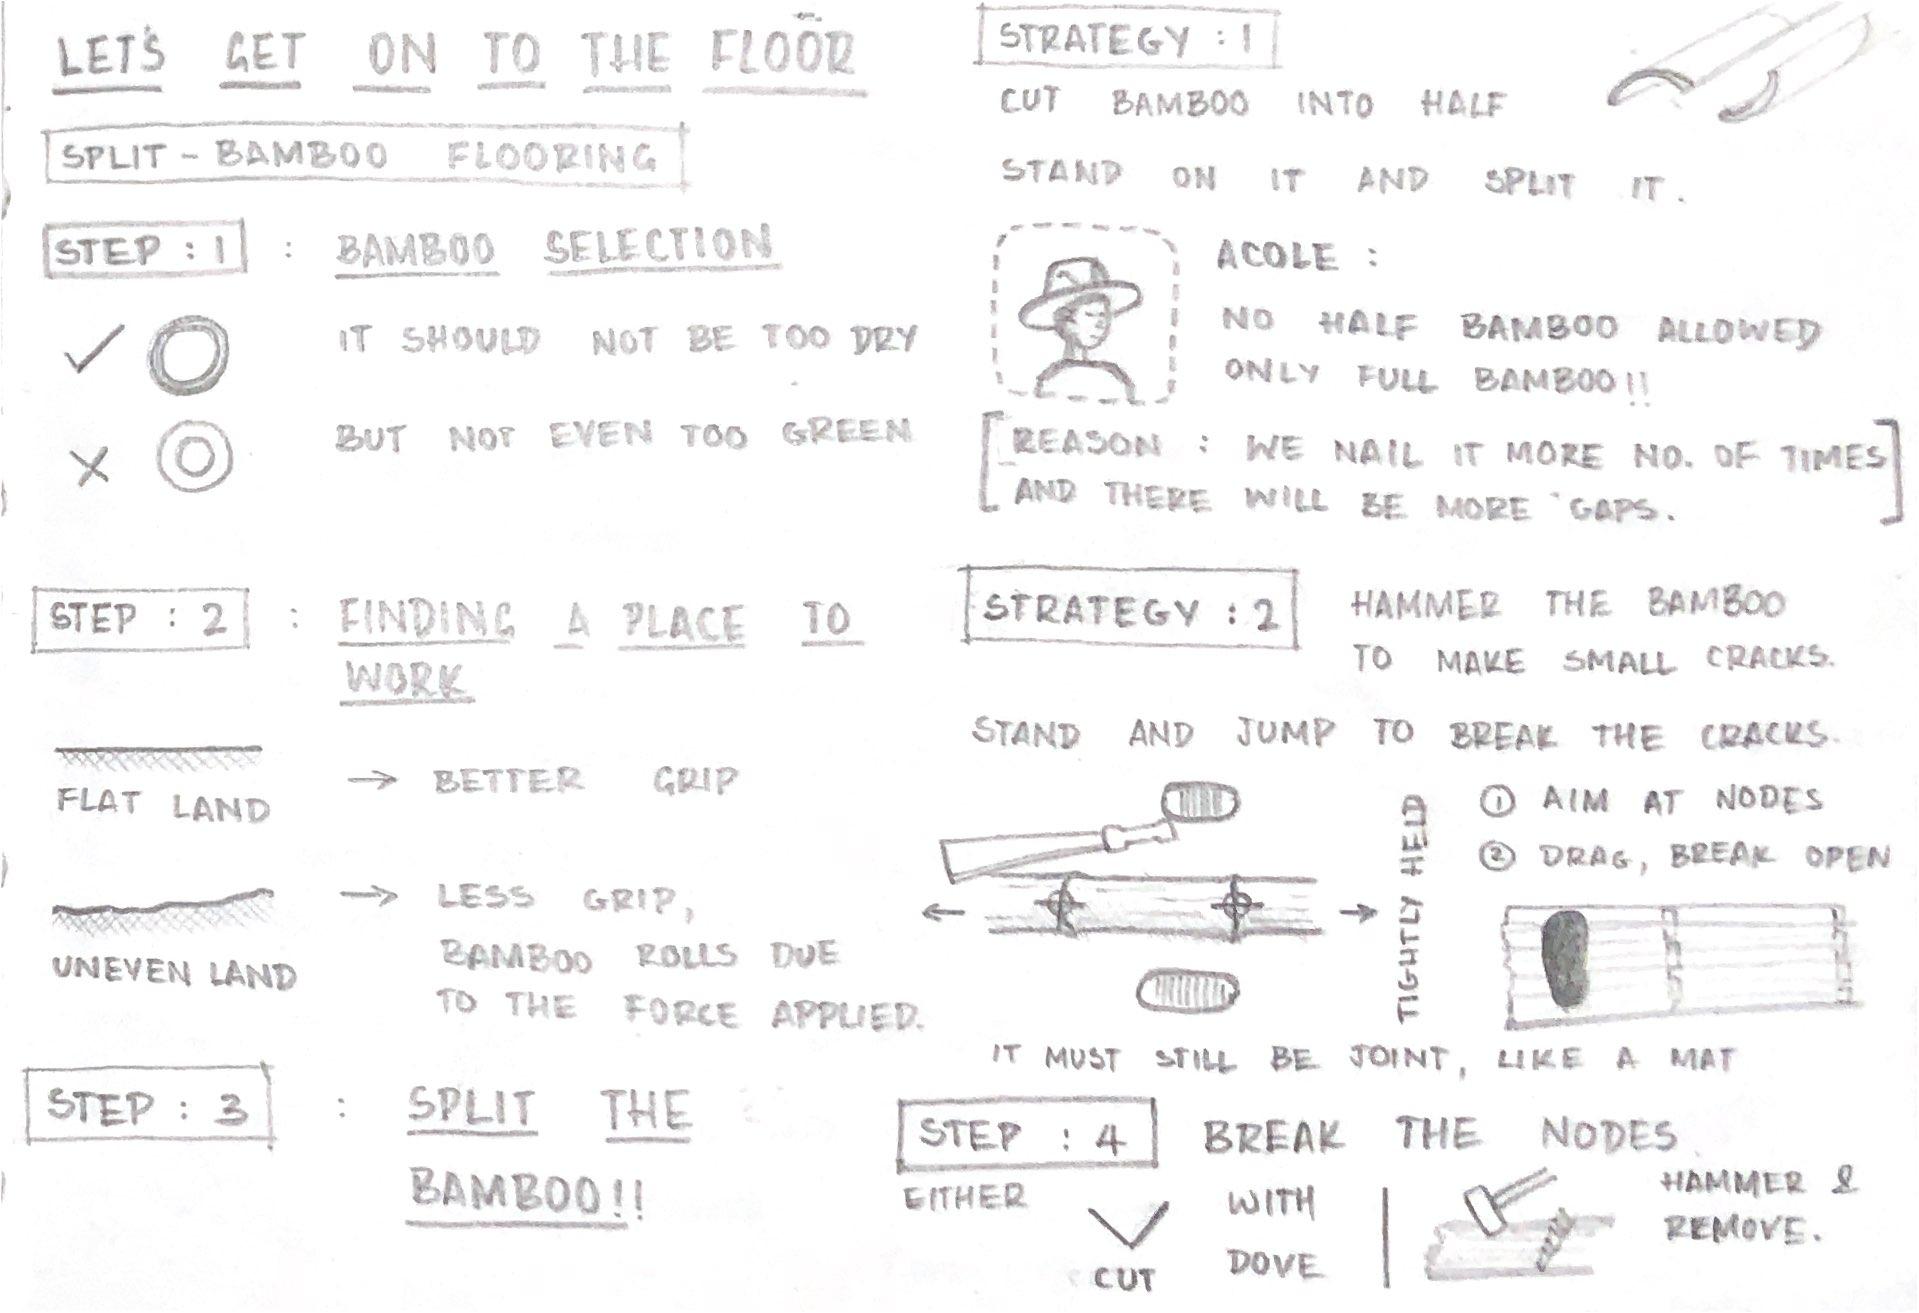 LET'S GET ON TO THE FLOOR
SPLIT - BAMBOO FLOORING
STEP : 1 : BAMBOO SELECTION
IT SHOULD NOT BE TOO DRY
BUT NOT EVEN TOO GREEN
STEP : 2 : FINDING A PLACE TO
WORK
FLAT LAND → BETTER GRIP
UNEVEN LAND → LESS GRIP,
BAMBOO ROLLS DUE
TO THE FORCE APPLIED.
STEP : 3 : SPLIT THE
BAMBOO!!
STRATEGY : 1
CUT BAMBOO INTO HALF
STAND ON IT AND SPLIT IT.
ACOLE :
NO HALF BAMBOO ALLOWED
ONLY FULL BAMBOO!!
[REASON : WE NAIL IT MORE NO. OF TIMES
AND THERE WILL BE MORE GAPS.]
STRATEGY : 2
HAMMER THE BAMBOO
TO MAKE SMALL CRACKS.
STAND AND JUMP TO BREAK THE CRACKS.
TIGHTLY HELD
① AIM AT NODES
② DRAG, BREAK OPEN
IT MUST STILL BE JOINT, LIKE A MAT
STEP : 4 BREAK THE NODES
EITHER
CUT
WITH
DOVE
HAMMER &
REMOVE.